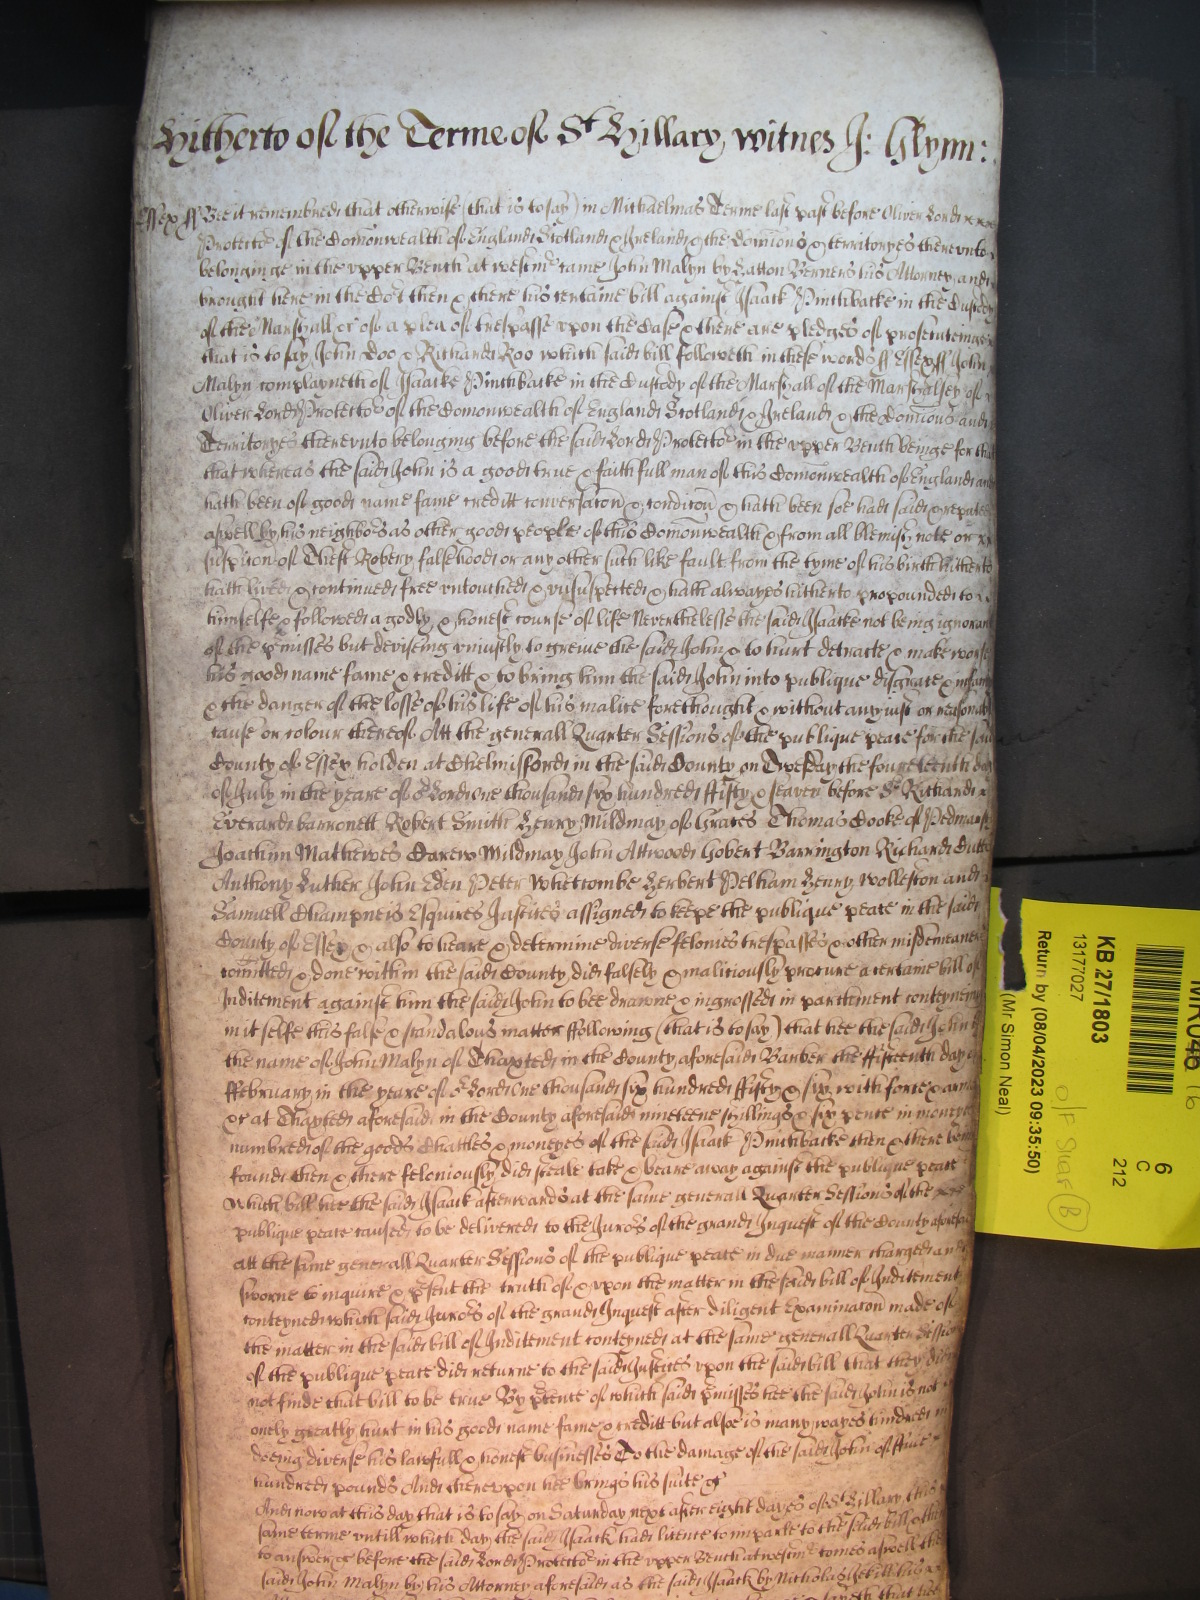 Hitherto of the Terme of St Hillary witnes J: Glynn:
Essex ss Bee it remembred that otherwise (that is to say) in Michaelmas Terme last past before Oliver Lord
Protector of the Comonwealth of England Scotland & Ireland & the Dominions & territoryes therevnto
belonginge in the vpper Bench at westmr came John Malyn by Hatton Berners his Attorney and
brought here in the Cort then & there his certaine bill against Isaack Pinchbacke in the Custody
of the Marshall &c of a plea of trespasse vpon the Case & there are pledges of prosecuteinge
that is to say John Doo & Richard Roo which said bill followeth in these words ss Essex ss John
Malyn complayneth of Isaacke Pinchbacke in the Custody of the Marshall of the Marshalsey of
Oliver Lord Protector of the Comonwealth of England Scotland & Ireland & the Dominions and
Territoryes therevnto belonging before the said Lord Protector in the vpper Bench beinge for that
that whereas the said John is a good true & faithfull man of this Comonwealth of England and
hath been of good name fame creditt conversacon & condicon & hath been soe had said & reputed
aswell by his neighbors as other good people of this Comonwealth & from all blemish note or
suspicion of Theft Robery falsehood or any other such like fault from the tyme of his birth hitherto
hath lived & continued free vntouched & vnsuspected & hath alwayes hitherto propounded to
himselfe & followed a godly & honest course of life Neverthelesse the said Isaacke not being ignorant
of the pmisses but deviseing vniustly to greive the said John & to hurt detracte & make worse
his good name fame & creditt & to bring him the said John into publique disgrace & infamy
& the danger of the losse of his life of his malice forethought & without any iust or reasonable
cause or colour thereof Att the generall Quarter Sessions of the publique peace for the said
County of Essex holden at Chelmissford in the said County on Twesday the fourteenth day
of July in the yeare of or Lord one thousand six hundred ffifty & seaven before Sr Richard
Everard barronett Robert Smith Henry Mildmay of Graces Thomas Cooke of Pedmarsh
Joachim Mathewes Carew Mildmay John Attwood Hobert Barrington Richard Cutts
Anthony Luther John Eden Peter Whetcombe Herbert Pelham Henry Wolleston and
Samuell Champneis Esquires Justices assigned to keepe the publique peace in the said
County of Essex & also to heare & determine diverse felonies trespasses & other misdemeanors
comitted & done within the said County did falsely & maliciously procure a certaine bill of
Inditement against him the said John to bee drawne & ingrossed in parchment conteyneing
in it selfe this false & scandalous matter ffollowing (that is to say) that hee the said John by
the name of John Malyn of Thaxted in the County aforesaid Barber the ffifteenth day of
ffebruary in the yeare of or Lord One thousand six hundred ffifty & six with force & armes
&c at Thaxted aforesaid in the County aforesaid nineteene shillings & six pence in moneyes
numbred of the goods Chattles & moneyes of the said Isaack Pinchbacke then & there being
found then & there feloniously did steale take & beare away against the publique peace
Which bill hee the said Isaack afterwards at the same generall Quarter Sessions of the
publique peace caused to be delivered to the Jurors of the grand Inquest of the County aforesaid
att the same generall Quarter Sessions of the publique peace in due manner charged and
sworne to inquire & psent the truth of & vpon the matter in the said bill of Inditement
conteyned which said Jurors of the grand Inquest after diligent Examinacon made of
the matter in the said bill of Inditement conteyned at the same generall Quarter Sessions
of the publique peace did returne to the said Justices vpon the said bill that they did
not finde that bill to be true By ptence of which said pmisses hee the said John is not
onely greatly hurt in his good name fame & creditt but alsoe is many wayes hindred in
doeing diverse his lawfull & honest businesses To the damage of the said John of ffive
hundred pounds And therevpon hee brings his suite &c
And now at this day that is to say on Saturday next after eight dayes of St Hillary this
same terme vntill which day the said Isaack had licence to imparle to the said bill & then
to answer &c before the said Lord Protector in the vpper Bench at westmr comes aswell the
said John Malyn by his Attorney aforesaid as the said Isaack by Nicholas Jekill his
KB 27/1803
13177027
Return by (08/04/2023 09:35:50)
(Mr Simon Neal)
6
C
212
B